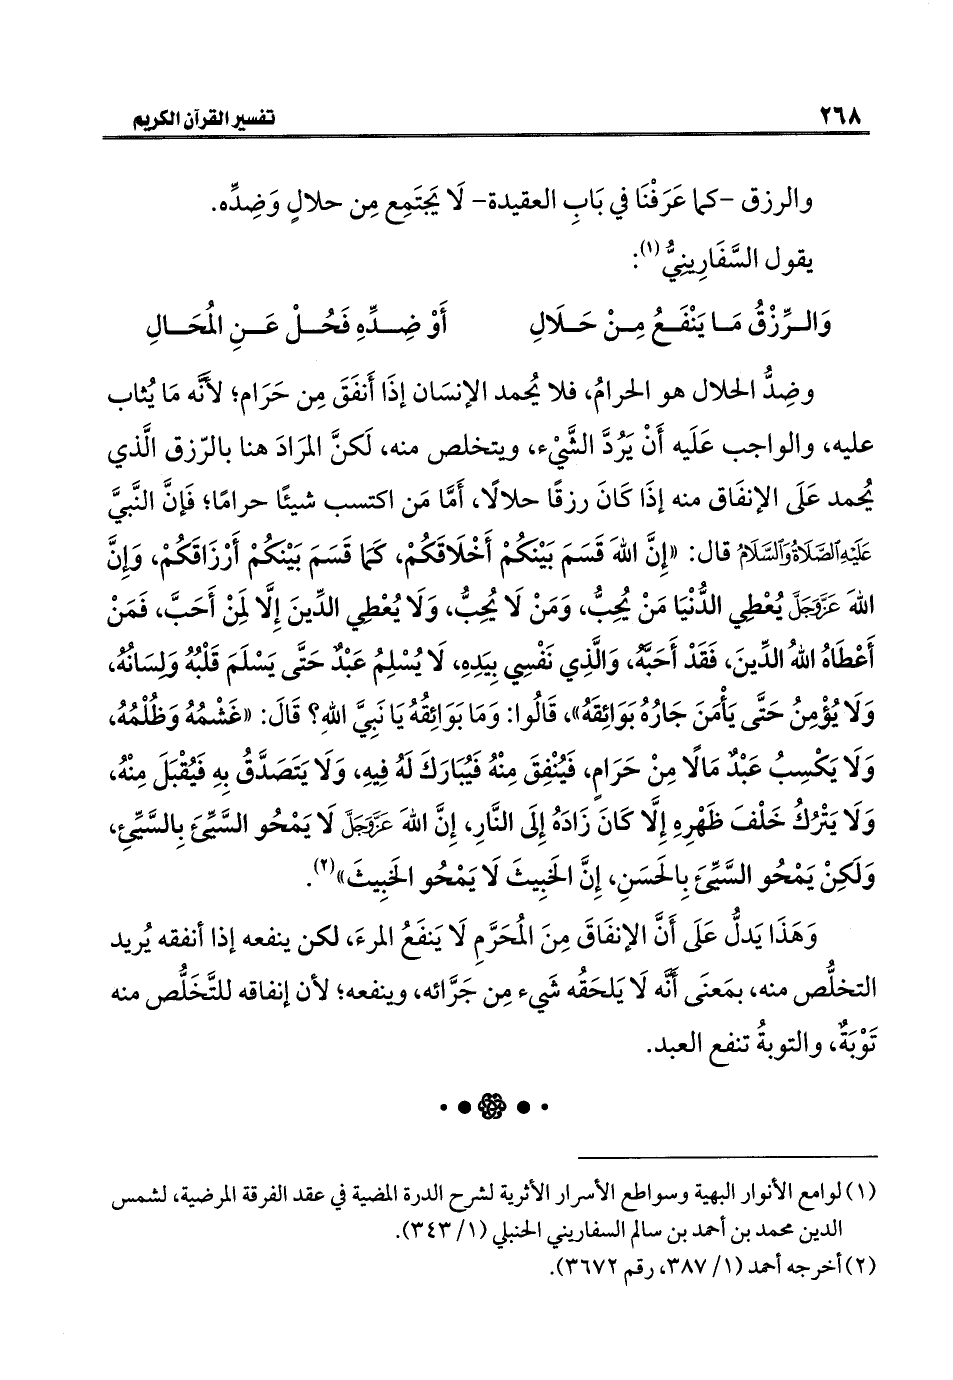 ٢٦٨
تفسير القرآن الكريم
والرزق -كما عَرَفْنَا في بَابِ العقيدة- لَا يَجتَمِع مِن حلالٍ وَضِدِّه.
يقول السَّفَارِينِيُّ(١):
وَالـرِّزْقُ مَـا يَنْفَـعُ مِـنْ حَـلَالِ أَوْ ضِـدِّهِ فَحُـلْ عَـنِ المُحَـالِ
وضِدُّ الحلال هو الحرامُ، فلا يُحمد الإنسَان إذَا أَنفَقَ مِن حَرَام؛ لأنَّه مَا يُثاب
عليه، والواجب عَلَيه أَنْ يَرُدَّ الشَّيْء، ويتخلص منه، لَكنَّ المرَادَ هنا بالرّزق الَّذي
يُحمد عَلَى الإنفَاق منه إذَا كَانَ رزقًا حلالًا، أمَّا مَن اكتسب شيئًا حرامًا؛ فَإنَّ النَّبيَّ
عَلَيْهِ ٱلصَّلَاةُ وَٱلسَّلَامُ قال: «إِنَّ اللهَ قَسَمَ بَيْنَكُمْ أَخْلَاقَكُمْ، كَمَا قَسَمَ بَيْنَكُمْ أَرْزَاقَكُمْ، وَإِنَّ
اللهَ عَزَّوَجَلَّ يُعْطِي الدُّنْيَا مَنْ يُحِبُّ، وَمَنْ لَا يُحِبُّ، وَلَا يُعْطِي الدِّينَ إِلَّا لِمَنْ أَحَبَّ، فَمَنْ
أَعْطَاهُ اللهُ الدِّينَ، فَقَدْ أَحَبَّهُ، وَالَّذِي نَفْسِي بِيَدِهِ، لَا يُسْلِمُ عَبْدٌ حَتَّى يَسْلَمَ قَلْبُهُ وَلِسَانُهُ،
وَلَا يُؤْمِنُ حَتَّى يَأْمَنَ جَارُهُ بَوَائِقَهُ»، قَالُوا: وَمَا بَوَائِقُهُ يَا نَبِيَّ اللهِ؟ قَالَ: «غَشْمُهُ وَظُلْمُهُ،
وَلَا يَكْسِبُ عَبْدٌ مَالًا مِنْ حَرَامٍ، فَيُنْفِقَ مِنْهُ فَيُبَارَكَ لَهُ فِيهِ، وَلَا يَتَصَدَّقُ بِهِ فَيُقْبَلَ مِنْهُ،
وَلَا يَتْرُكُ خَلْفَ ظَهْرِهِ إِلَّا كَانَ زَادَهُ إِلَى النَّارِ، إِنَّ اللهَ عَزَّوَجَلَّ لَا يَمْحُو السَّيِّئَ بِالسَّيِّئِ،
وَلَكِنْ يَمْحُو السَّيِّئَ بِالحَسَنِ، إِنَّ الخَبِيثَ لَا يَمْحُو الخَبِيثَ»(٢).
وَهَذَا يَدلُّ عَلَى أَنَّ الإنفَاقَ مِنَ المُحَرَّمِ لَا يَنفَعُ المرءَ، لكن ينفعه إذا أنفقه يُريد
التخلُّص منه، بمَعنَى أَنَّه لَا يَلحَقُه شَيء مِن جَرَّائه، وينفعه؛ لأن إنفاقه للتَّخَلُّص منه
تَوْبَةٌ، والتوبةُ تنفع العبد.
(١) لوامع الأنوار البهية وسواطع الأسرار الأثرية لشرح الدرة المضية في عقد الفرقة المرضية، لشمس
الدين محمد بن أحمد بن سالم السفاريني الحنبلي (١/ ٣٤٣).
(٢) أخرجه أحمد (١/ ٣٨٧، رقم ٣٦٧٢).